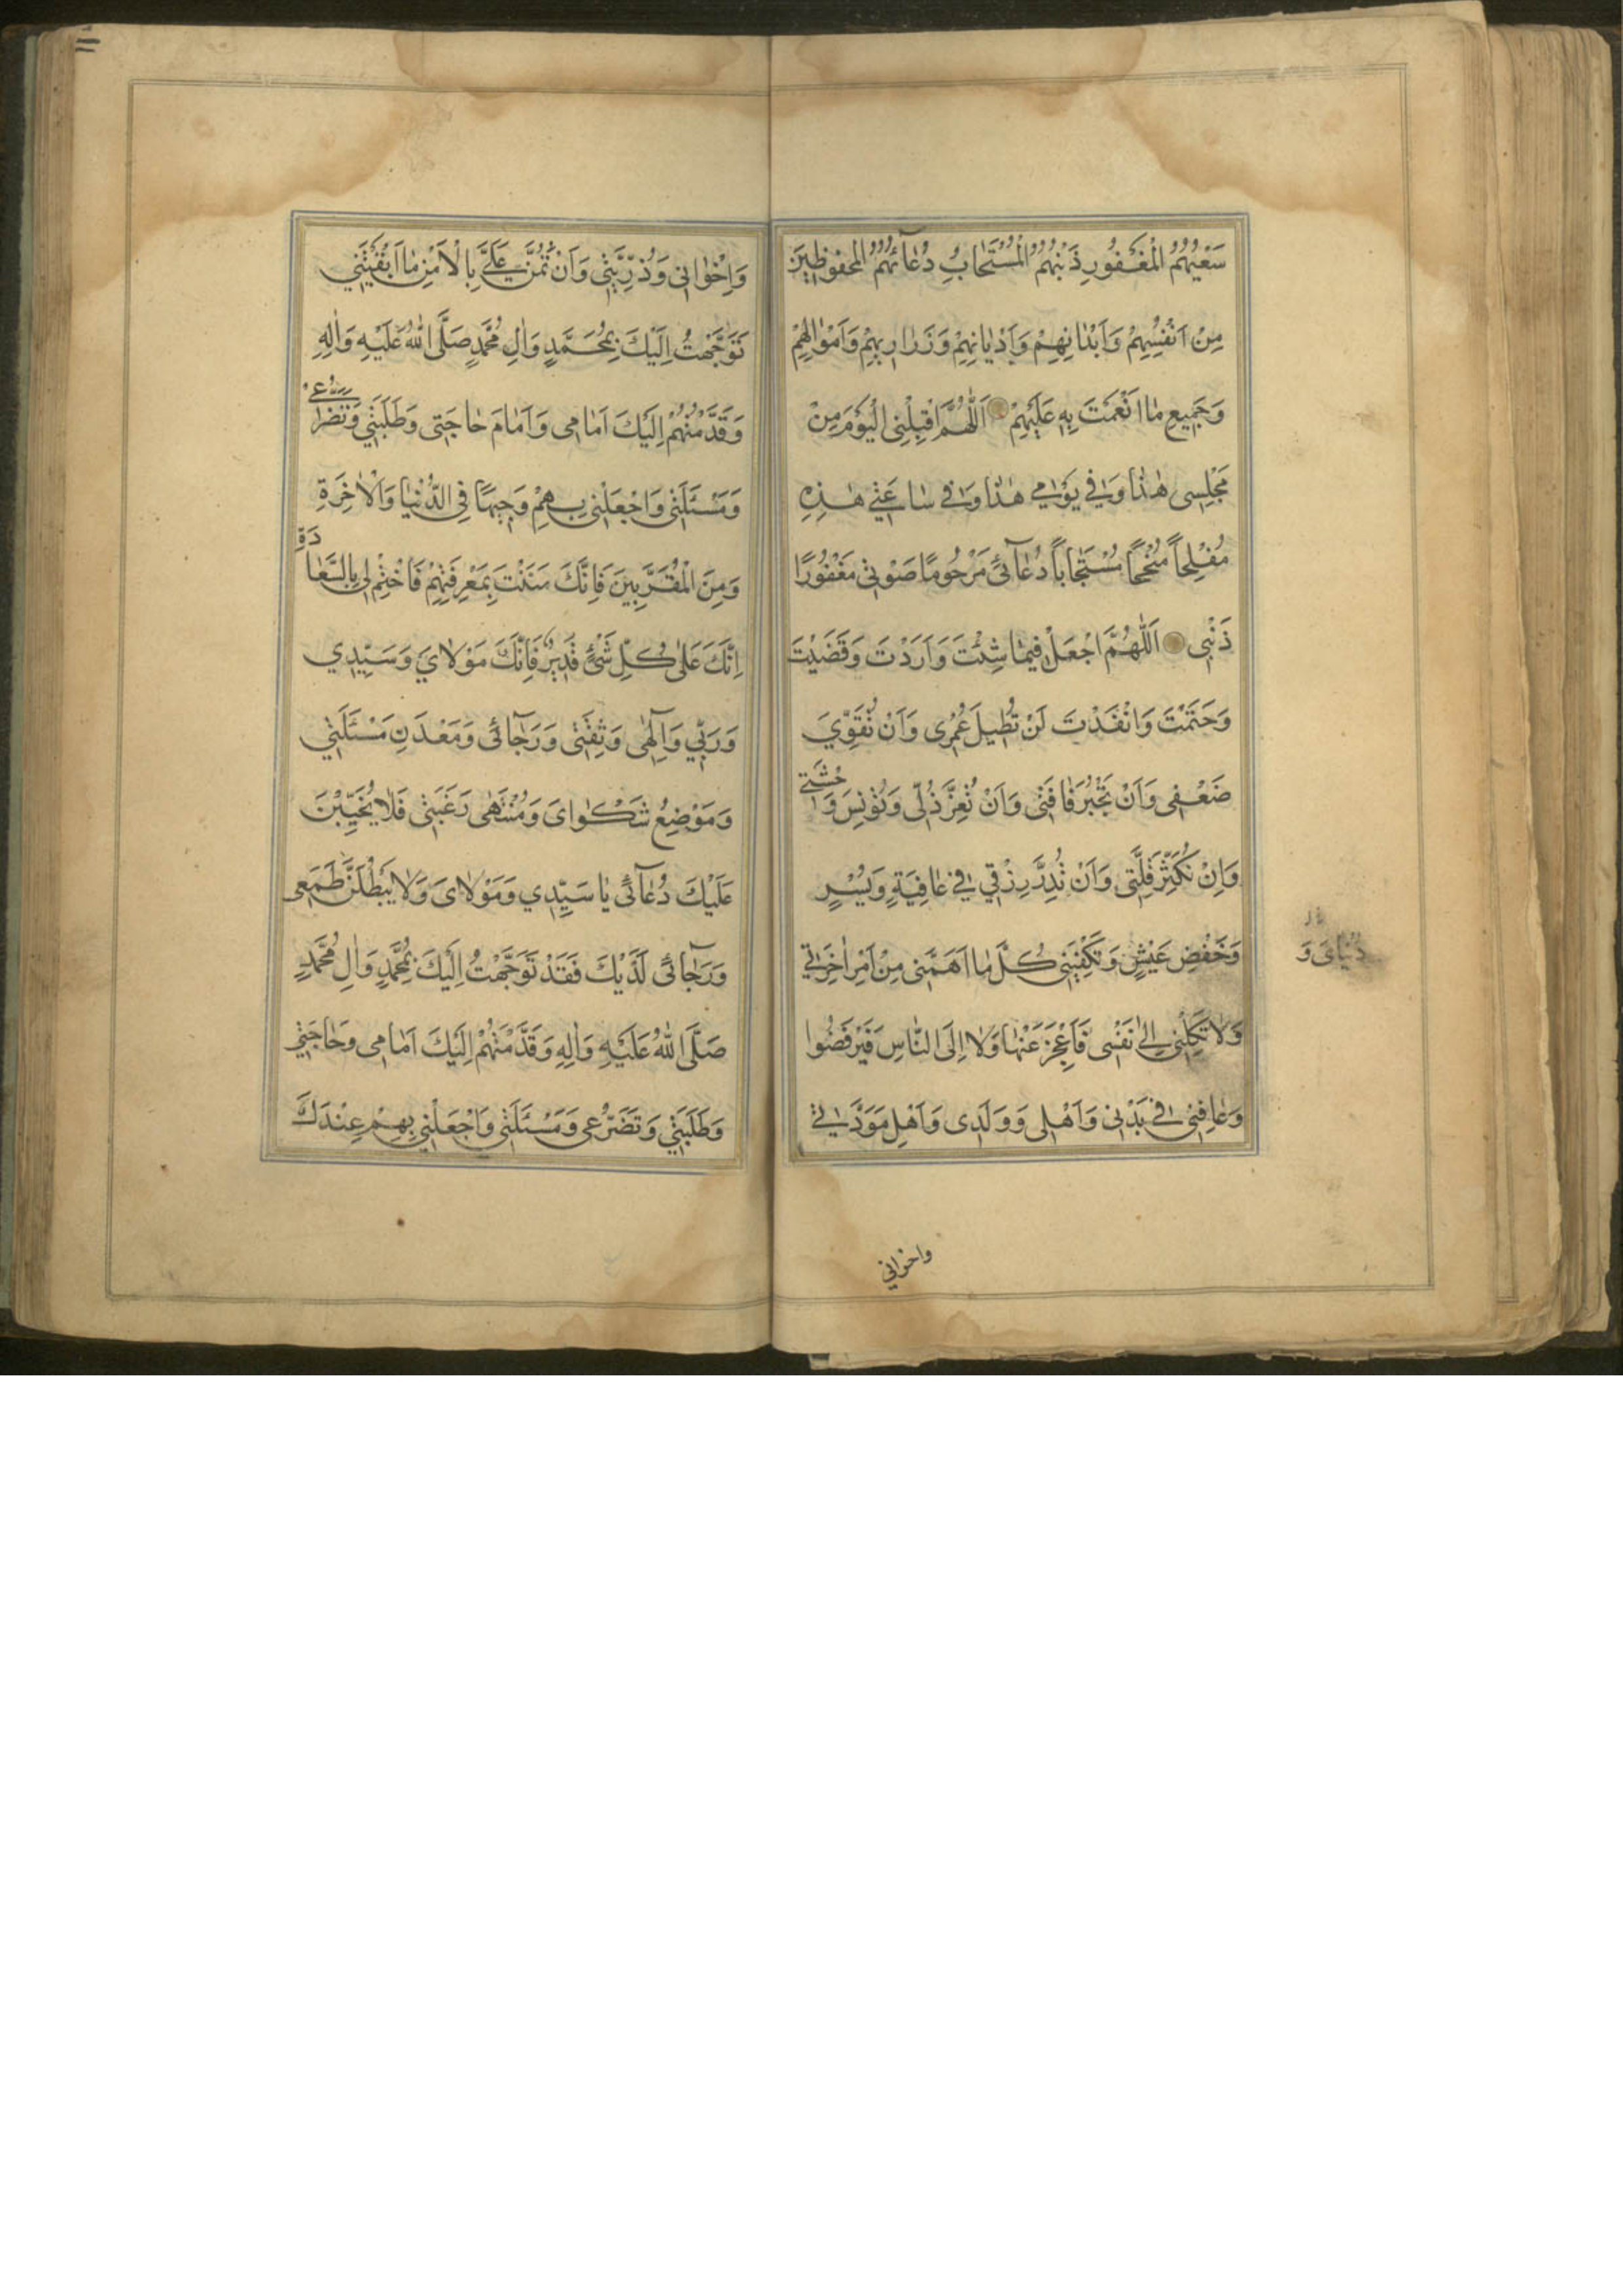 سَعْيُهُمُ الْمَغْفُورِ ذَنْبُهُمُ الْمُسْتَجٰابِ دُعٰآئُهُمُ الْمَحْفُوظِينَ
مِنْ اَنْفُسِهِمْ وَاَبْدٰانِهِمْ وَاَدْيٰانِهِمْ وَذَرٰارِيهِمْ وَاَمْوٰالِهِمْ
وَجَمِيعِ مٰا اَنْعَمْتَ بِهِ عَلَيْهِمْ اَللّٰهُمَّ اقْبِلْنِى الْيَوْمَ مِنْ
مَجْلِسِى هٰذٰا وَفِي يَوْمِي هٰذٰا وَفِي سٰاعَتِي هٰذِهِ
مُفْلِحاً مُنْجِحاً مُسْتَجٰاباً دُعٰآئِى مَرْحُومًا صَوْتِى مَغْفُورًا
ذَنْبِى اَللّٰهُمَّ اجْعَلْ فِيمٰا شِئْتَ وَاَرَدْتَ وَقَضَيْتَ
وَحَتَمْتَ وَانْفَذْتَ لَنْ تُطِيلَ عُمْرِى وَاَنْ تُقَوِّيَ
ضَعْفِى وَاَنْ تَجْبُرَ فٰاقَتِى وَاَنْ تُعِزَّ ذُلِّى وَتُؤْنِسَ وَحْشَتِى
وَاِنْ تُكَثِّرَ قِلَّتِى وَاَنْ تُدِرَّ رِزْقِي فِي عٰافِيَةٍ وَيُسْرٍ
وَخَفْضِ عَيْشٍ وَتَكْفِيَنِى كُلَّ مٰا اَهَمَّنِى مِنْ اَمْرِ اٰخِرَتِي
دُنْيٰاىَ وَ
وَلٰا تَكِلْنِى اِلٰى نَفْسِى فَاَعْجِزَ عَنْهٰا وَلٰا اِلَى النّٰاسِ فَيَرْفَضُوا
وَعٰافِنِى فِي بَدَنِى وَاَهْلِى وَوَلَدِى وَاَهْلِ مَوَدَّتِي
واخواني
وَاِخْوٰانِى وَذُرِّيَّتِى وَاَنْ تَمُنَّ عَلَيَّ بِالْاَمْنِ مٰا اَبْقَيْتَنِي
تَوَجَّهْتُ اِلَيْكَ بِمُحَمَّدٍ وَاٰلِ مُحَمَّدٍ صَلَّى اللّٰهُ عَلَيْهِ وَاٰلِهِ
وَقَدَّمْتُهُمْ اِلَيْكَ اَمٰامِى وَاَمٰامَ حٰاجَتِى وَطَلَبَتِي وَتَضَرُّعِى
وَمَسْئَلَتِى وَاجْعَلْنِى بِهِمْ وَجِيهًا فِى الدُّنْيٰا وَالْاٰخِرَةِ
وَمِنَ الْمُقَرَّبِينَ فَاِنَّكَ مَنَنْتَ بِمَعْرِفَتِهِمْ فَاخْتِمْ لِى بِالسَّعٰادَةِ
اِنَّكَ عَلٰى كُلِّ شَىْءٍ قَدِيرٌ فَاِنَّكَ مَوْلٰايَ وَسَيِّدِي
وَرَبِّي وَاِلٰهِى وَثِقَتِى وَرَجٰآئِى وَمَعْدَنِ مَسْئَلَتِي
وَمَوْضِعُ شَكْوٰاىَ وَمُنْتَهٰى رَغْبَتِى فَلٰا يُخَيِّبَنَّ
عَلَيْكَ دُعٰآئِى يٰا سَيِّدِي وَمَوْلٰاىَ وَلٰا يَبْطُلَنَّ طَمَعِى
وَرَجٰآئِى لَدَيْكَ فَقَدْ تَوَجَّهْتُ اِلَيْكَ بِمُحَمَّدٍ وَاٰلِ مُحَمَّدٍ
صَلَّى اللّٰهُ عَلَيْهِ وَاٰلِهِ وَقَدَّمْتُهُمْ اِلَيْكَ اَمٰامِى وَحٰاجَتِي
وَطَلَبَتِي وَتَضَرُّعِى وَمَسْئَلَتِى وَاجْعَلْنِي بِهِمْ عِنْدَكَ